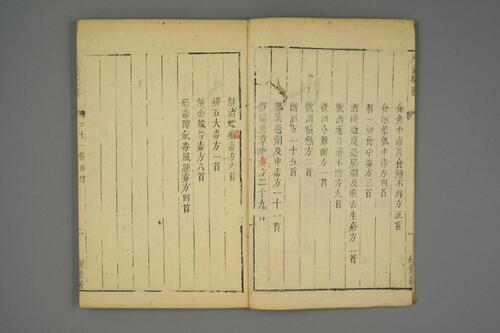 食魚中毒及食鱠不消方五首
食椒菜瓠中毒方四首
解一切食中毒方三首
酒醉過度恐腸爛及喉舌生瘡方一首
飲酒連日醉不醒方九首
飲酒令難醉方一首
飲酒積熱方二首
斷酒方一十五首
服藥過劑及中毒方一十一首
解諸藥草中毒方二十九首
解諸毒方六首
辨五大毒方一首
解金銀等毒方八首
惡毒瘴氣毒風腫方四首
十一卷目